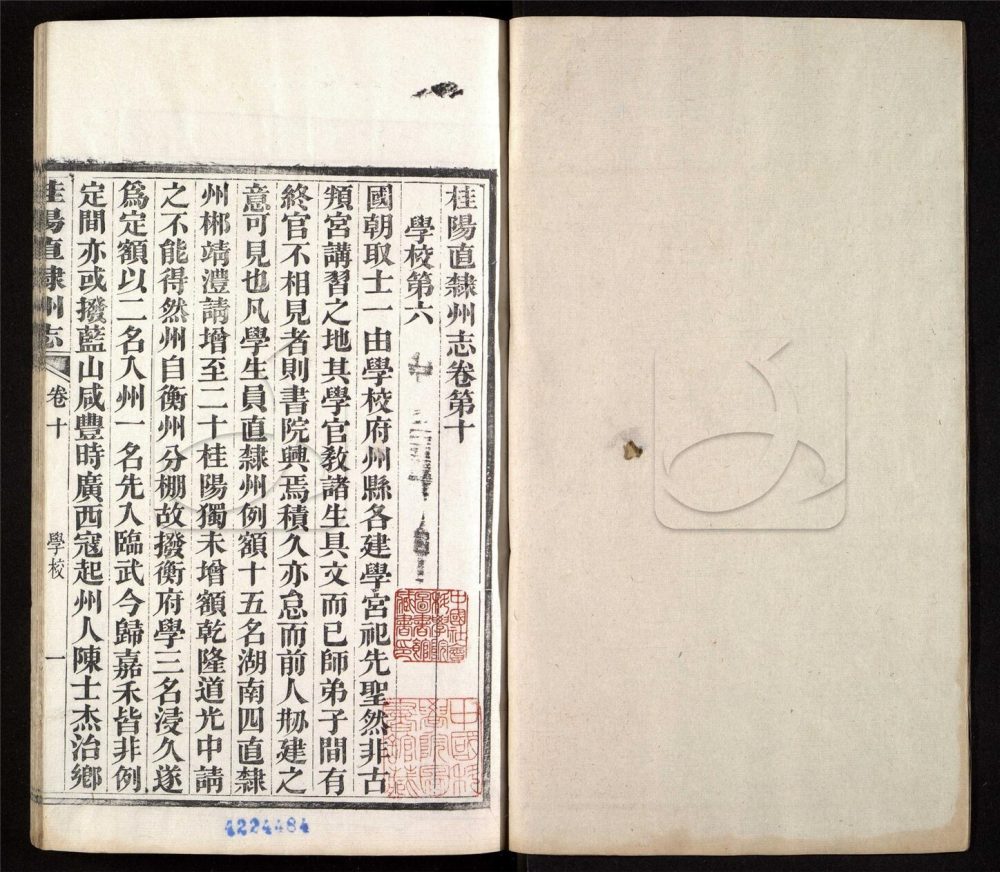 桂陽直隸州志卷第十
學校第六
國朝取士一由學校府州縣各建學宮祀先聖然非古
頖宮講習之地其學官教諸生具文而已師弟子間有
終官不相見者則書院興焉積久亦怠而前人刱建之
意可見也凡學生員直隸州例額十五名湖南四直隸
州郴靖澧請增至二十桂陽獨未增額乾隆道光中請
之不能得然州自衡州分棚故撥衡府學三名浸久遂
爲定額以二名入州一名先入臨武今歸嘉禾皆非例
定間亦或撥藍山咸豐時廣西寇起州人陳士杰治鄉
桂陽直隸州志 卷十 學校 一
中國社會
科學院
圖書館
藏書印
中國科
學院圖
書館藏
4224484